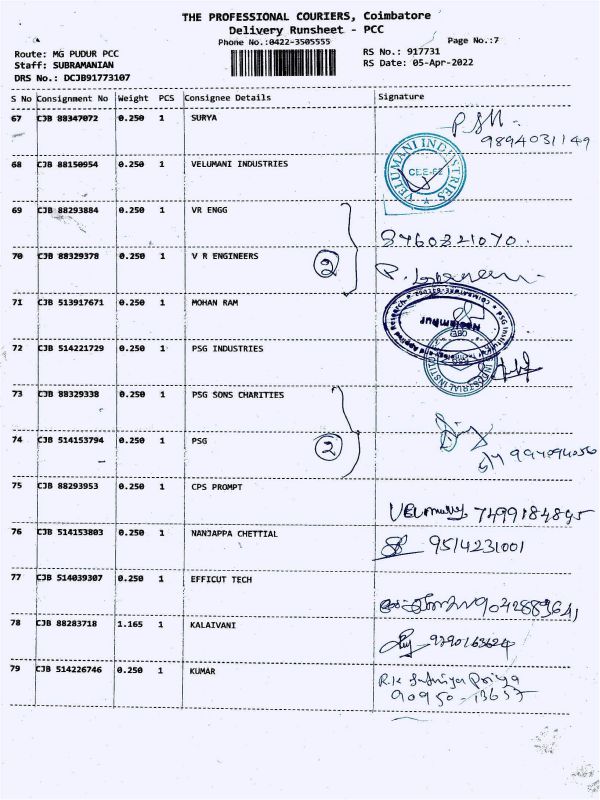 THE PROFESSIONAL COURIERS, Coimbatore
Delivery Runsheet - PCC
Phone No.:0422-3505555
Page No.:7
Route: MG PUDUR PCC
RS No.: 917731
Staff: SUBRAMANIAN
RS Date: 05-Apr-2022
DRS No.: DCJB91773107
S No Consignment No Weight PCS Consignee Details Signature
67 CJB 88347072 0.250 1 SURYA
9894031149
68 CJB 88150954 0.250 1 VELUMANI INDUSTRIES
VELUMANI INDUSTRIES
69 CJB 88293884 0.250 1 VR ENGG
8760321070.
70 CJB 88329378 0.250 1 V R ENGINEERS
2
71 CJB 513917671 0.250 1 MOHAN RAM
Neelambur
72 CJB 514221729 0.250 1 PSG INDUSTRIES
73 CJB 88329338 0.250 1 PSG SONS CHARITIES
74 CJB 514153794 0.250 1 PSG
2
75 CJB 88293953 0.250 1 CPS PROMPT
76 CJB 514153803 0.250 1 NANJAPPA CHETTIAL
9514231001
77 CJB 514039307 0.250 1 EFFICUT TECH
9042883641
78 CJB 88283718 1.165 1 KALAIVANI
9790163624
79 CJB 514226746 0.250 1 KUMAR
90950-13657